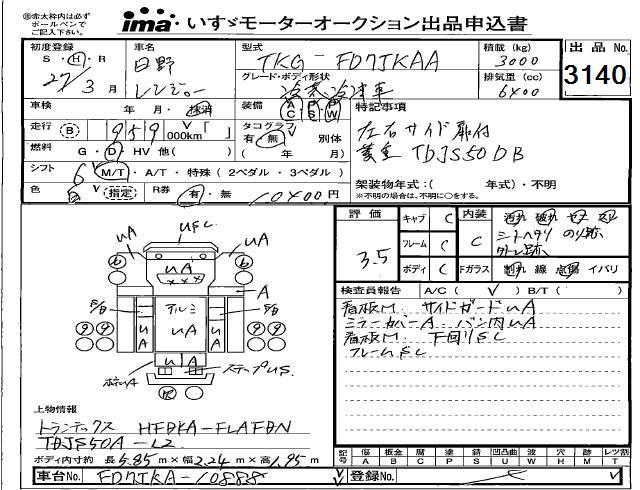 ※赤太枠内は必ず
ボールペンで
ご記入下さい。
ima いすゞモーターオークション出品申込書
初度登録 S・H・R 27/3月
車名 日野 レンジャー
型式 TKG-FD7JKAA
グレード・ボディ形状 冷蔵冷凍車
積載(kg) 3000
排気量(cc) 6400
出品No. 3140
車検 年・月・抹消
装備 A/C P/S P/W
特記事項
左右サイド扉付
菱重 TDJS50DB
走行 B 959 000km「 」
タコグラフ 有・無 別体 ( 年 月)
燃料 G・D・HV 他( )
シフト 6 M/T・A/T・特殊(2ペダル・3ペダル)
架装物年式:( 年式)・不明
※不明の場合は、不明に○をする。
色 (指定) R券 有・無 10400円
評価 3.5
キャブ C
フレーム C
ボディ C
内装 C
シートヘタリ のり跡
外し跡
Fガラス 割れ 線 点傷 イバリ
検査員報告 A/C( ) B/T( )
看板M サイドガードuA
ミラーカバーA バン内uA
看板M 下回りSC
フレームSC
uSC
uA
uA
uA
×××
A
S/B
S/B
アルミ
uA
uA
uA
uA
ボデuA
ステップuS
上物情報
トランテックス HFBKA-FLAFBN
TDJS50A-L2
ボディ内寸約 長5.85m×幅2.24m×高1.95m
車台No. FD7JKA-10888
登録No.
記号 傷A 板金B 腐C 塗P 錆S 凹凸曲U 波W 穴H 欠M レツ割T